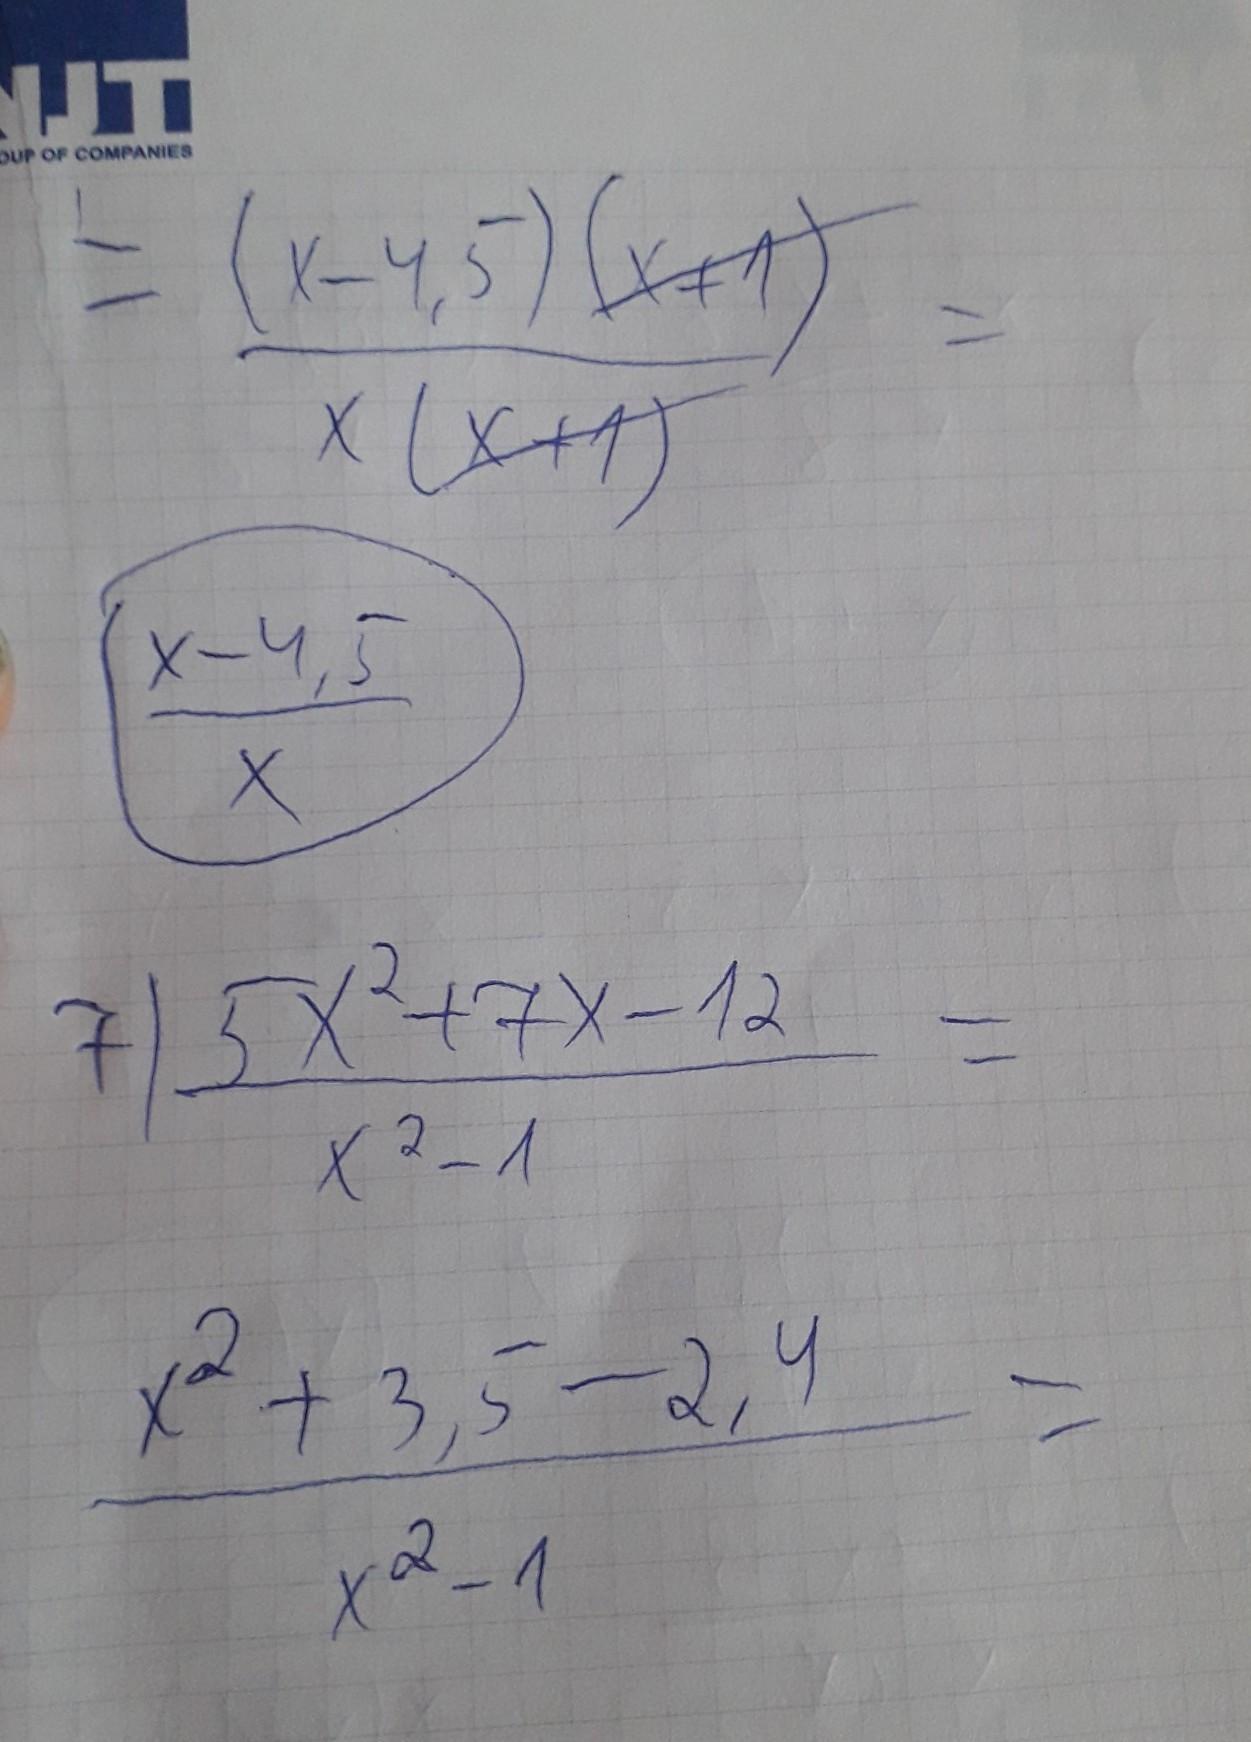 OUP OF COMPANIES
= (x-4,5)(x+1) =
x(x+1)
x-4,5
x
7) 5x²+7x-12 =
x²-1
x²+3,5-2,4 =
x²-1